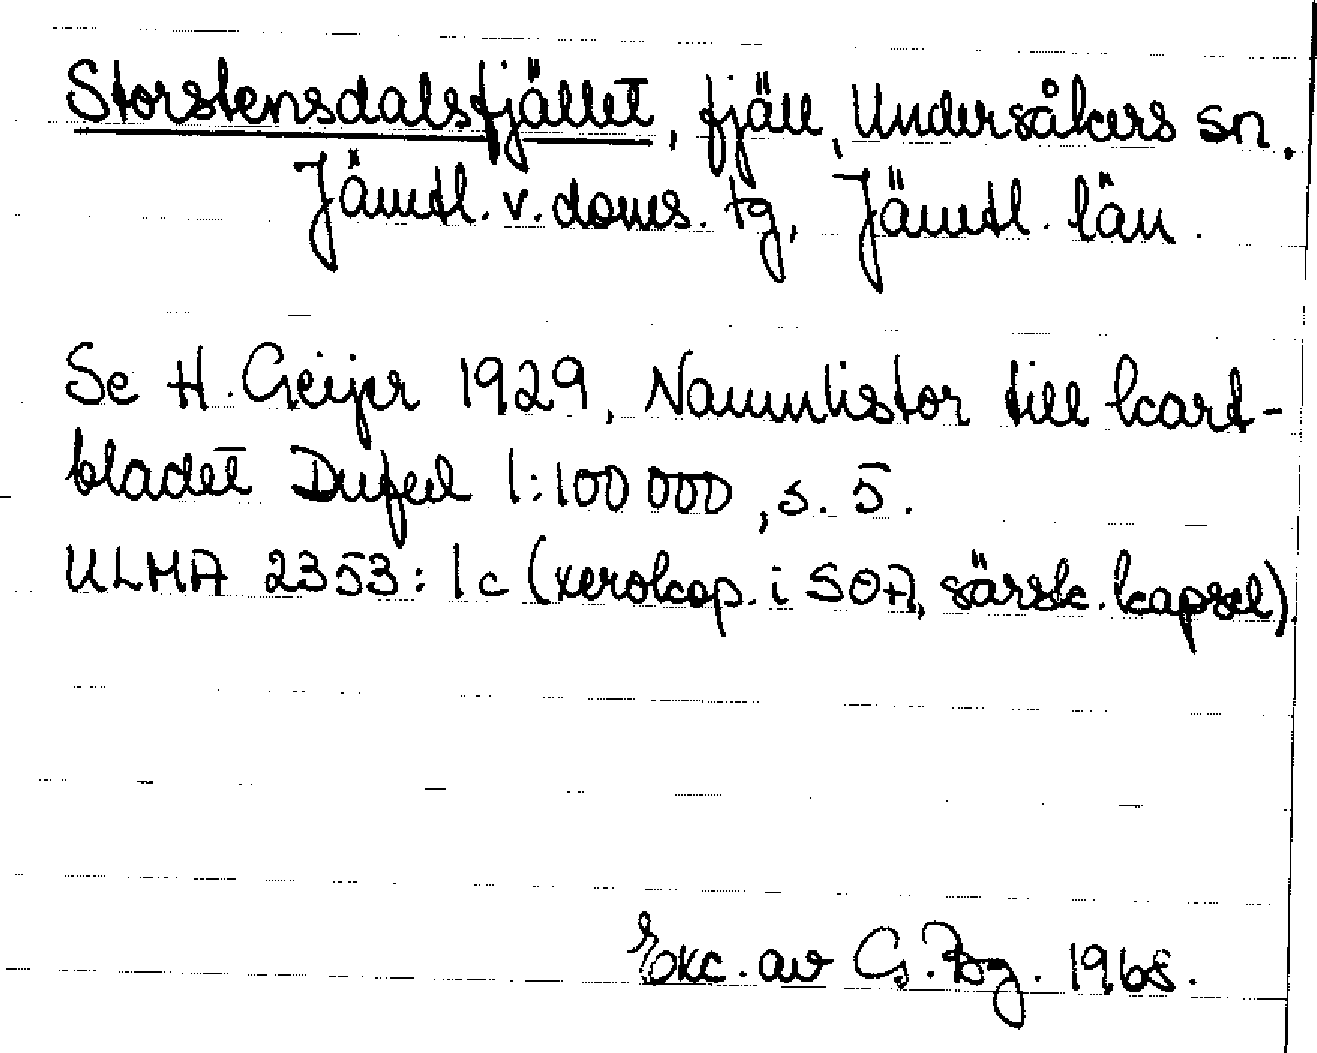 Storstensdalsfjället, fjäll, Undersåkers sn.
Jämtl. v. doms. tg, Jämtl. län.
Se H. Geijer 1929, Namnlistor till kart-
bladet Dufed 1:100 000, s. 5.
ULMA 2353: 1c (xerokop. i SOA, särsk. kapsel).
Exc. av G. Bg. 1968.